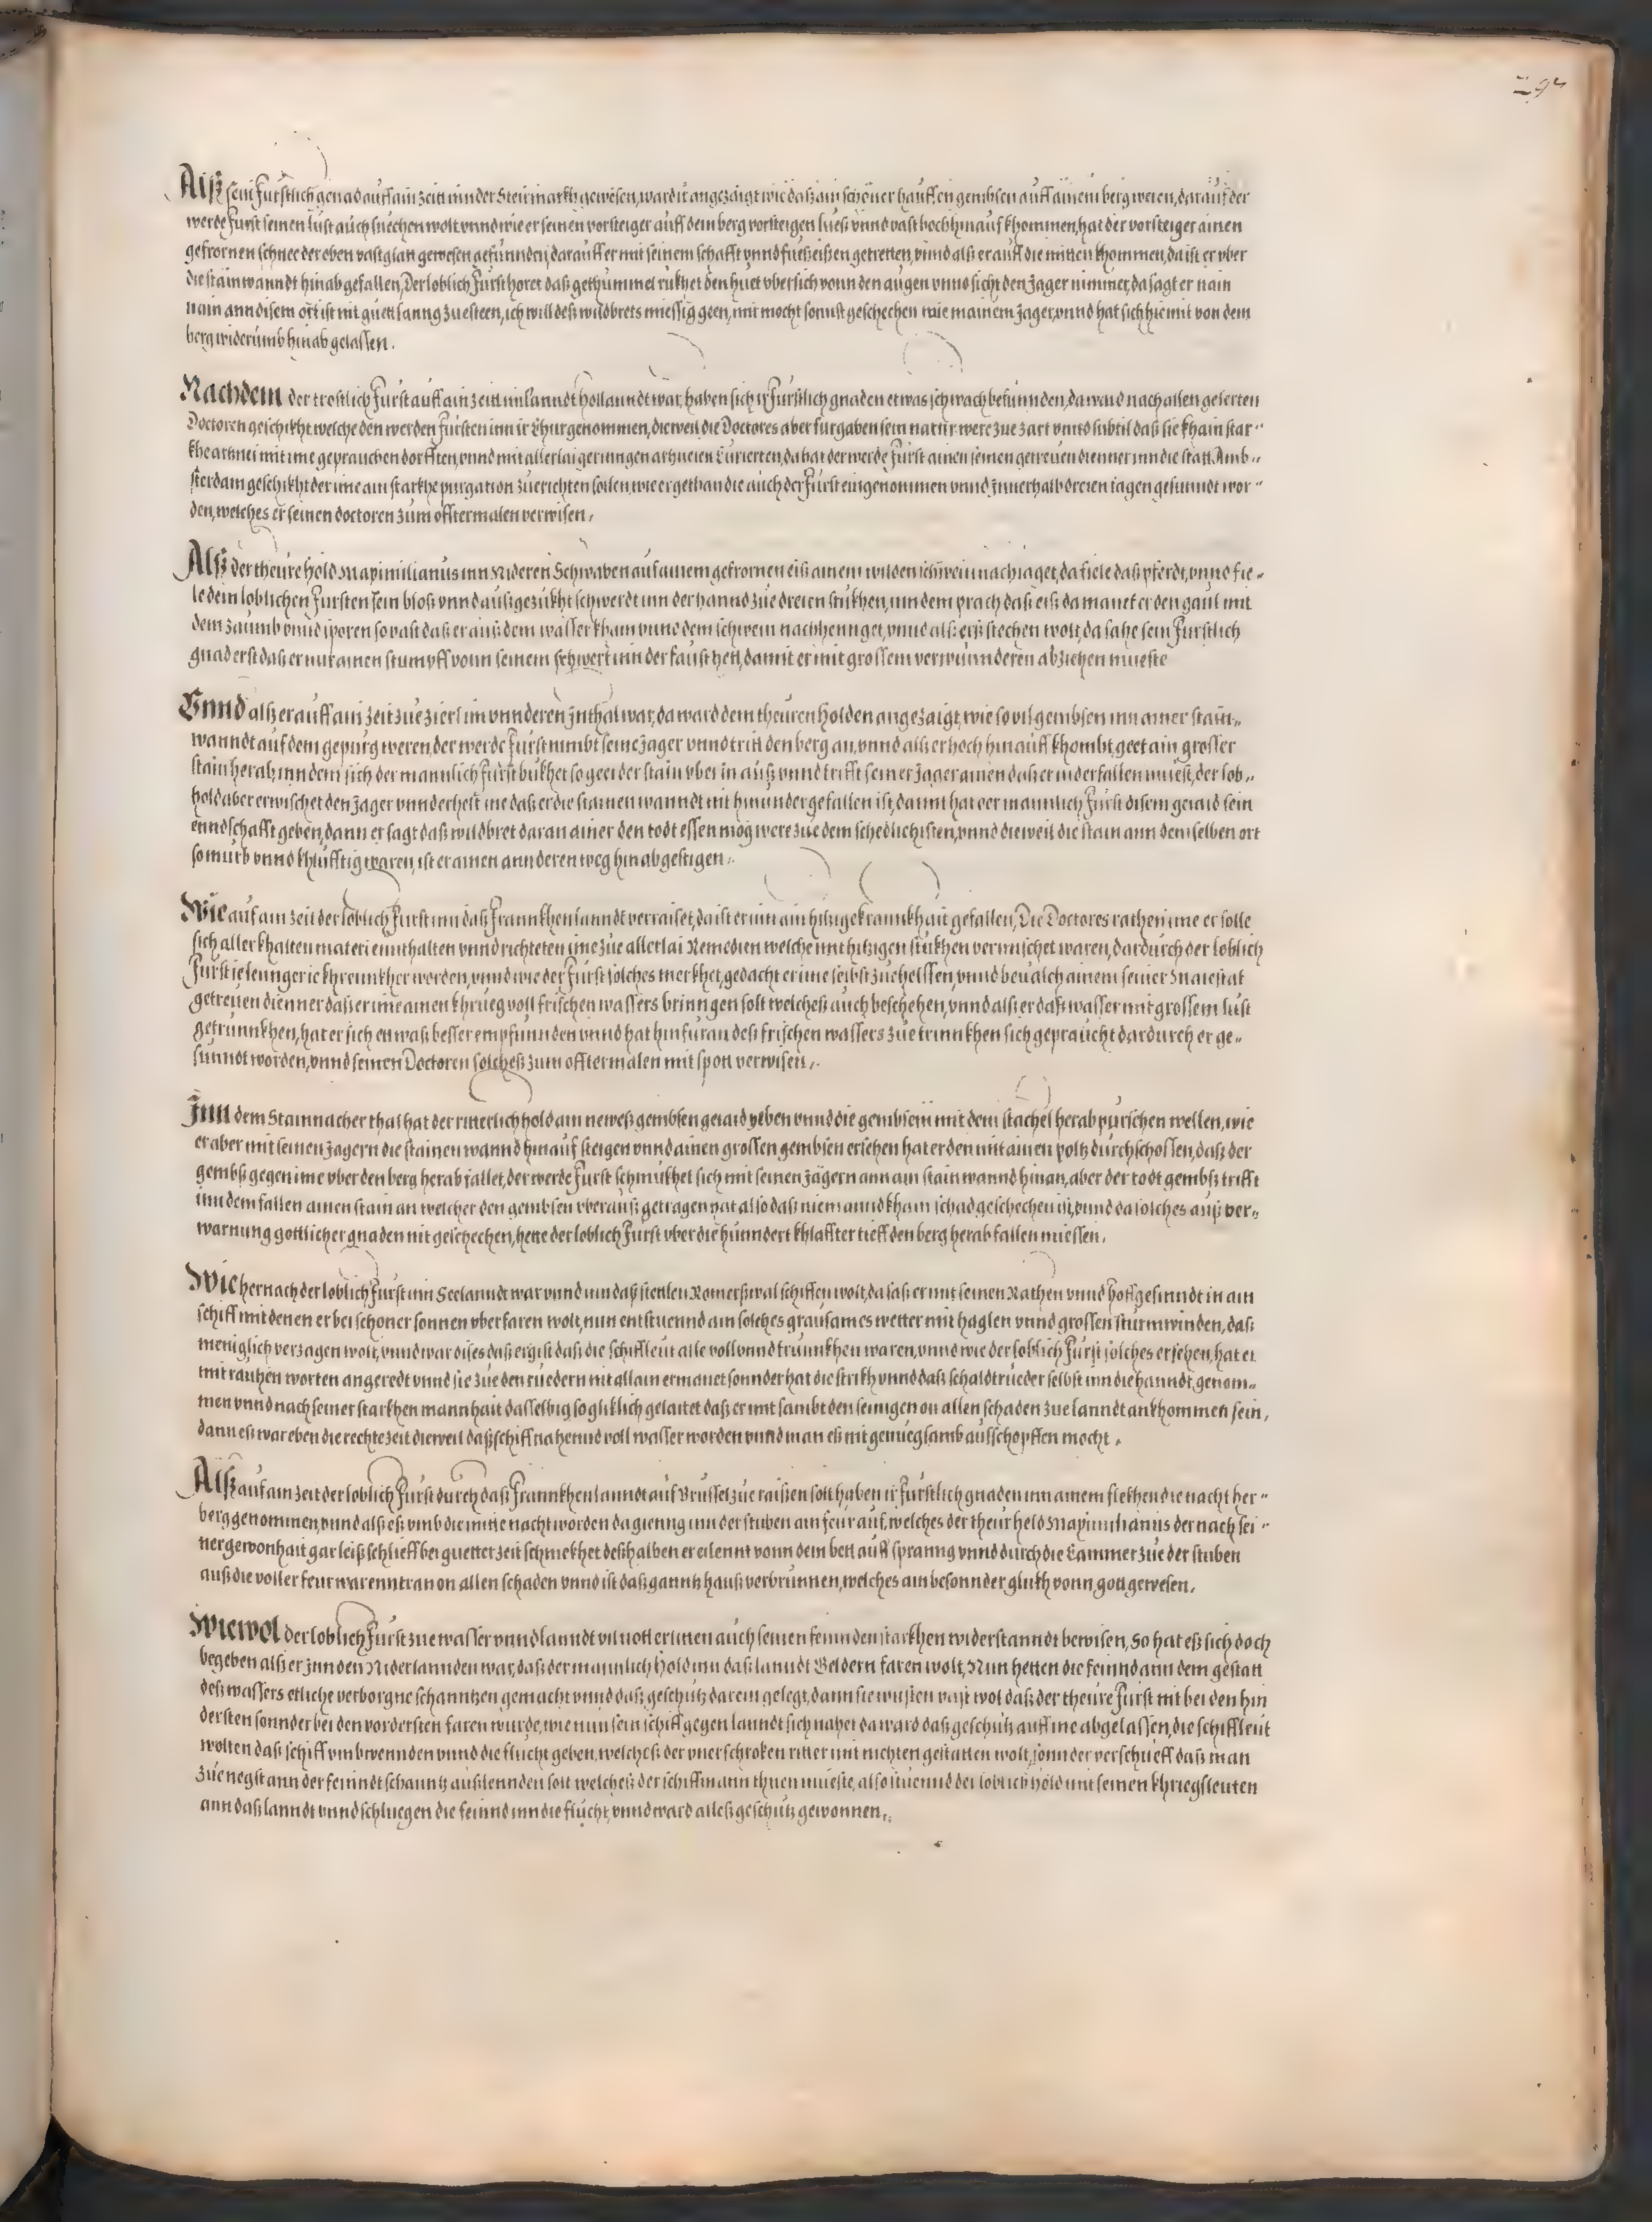 Alß sein Furstlich genad auff ain zeitt inn der Steirmarkh gewesen, ward ir angezaigt wie daß ain schöner hauffen gembsen auff ainem berg weren, darauf der
werde Furst seinen lust auch suechen wolt vnnd wie er seinen vorsteiger auff dem berg vorsteigen lueß vnnd vast hoch hinauf khommen, hat der vorsteiger ainen
gefrornen schnee der eben vast glat gewesen gefunnden, darauff er mit seinem schafft vnnd fueßeißen getretten, vnnd alß er auff die mitten khommen, da ist er vber
die stainwanndt hinab gefallen, Der loblich Furst horet daß gethummel rukhet den huet vbersich vonn den augen vnnd sicht den Jager nimmer, da sagt er nain
nain ann disem ort ist nit guett lanng zue steen, ich will deß wildbrets miessig geen, mir mocht sonnst geschechen wie mainem Jager, vnnd hat sich hiemit von dem
berg widerumb hinab gelassen.
Nachdem der trostlich Furst auff ain zeitt im lanndt hollanndt war, haben sich ir Furstlich gnaden etwas schwach befunnden, da ward nach allen gelerten
Doctoren geschikht welche den werden Fursten inn ir Chur genommen, dieweil die Doctores aber furgaben sein natur were zue zart vnnd subtil daß sie khain star-
khe arznei mit ime geprauchen dorfften, vnnd mit allerlai geringen arzneien Curierten, da hat der werde Furst ainen seinen getreuen dienner inn die statt Amb-
sterdam geschikht der ime ain starkhe purgation zuerichten sollen, wie er gethan die auch der Furst eingenommen vnnd Innerhalb dreien tagen gesunndt wor-
den, welches er seinen doctoren zum offtermalen verwisen,
Alß der theure hold Maximilianus inn Nideren Schwaben auf ainem gefrornen eiß ainem wilden schwein nachiaget, da fiele daß pferdt, vnnd fie-
le dem loblichen Fursten sein bloß vnnd außgezukht schwerdt inn der hannd zue dreien stukhen, inn dem prach daß eiß da manet er den gaul mit
dem zaumb vnnd sporen so vast daß er auß dem wasser kham vnnd dem schwein nachhennget, vnnd alß erß stechen wolt, da sahe sein Furstlich
gnad erst daß er nur ainen stumpff vonn seinem schwert inn der faust hett, damit er mit grossem verwunnderen abziehen mueste
Vnnd alß er auff ain zeit zue zierl im vnnderen Inthal war, da ward dem theuren holden angezaigt, wie so vil gembsen inn ainer stain-
wanndt auf dem gepurg weren, der werde Furst nimbt seine Jager vnnd tritt den berg an, vnnd alß er hoch hinauff khombt, geet ain grosser
stain herab, inn dem sich der mannlich Furst bukhet so geet der stain vber in auß vnnd trifft seiner Jager ainen daß er niderfallen muest, der lob-
hold aber erwischet den Jager vnnd erhelt ine daß er die stainen wanndt nit hinunder gefallen ist, damit hat der mannlich Furst disem geiaid sein
enndschafft geben, dann er sagt daß wildbret daran ainer den todt essen mog were zue dem schedlichisten, vnnd dieweil die stain ann dem selben ort
so murb vnnd khlufftig waren, ist er ainen annderen weg hinab gestigen.
Wie auf ain zeit der loblich Furst inn daß Frannkhenlanndt verraiset, da ist er inn ain hitzige krannkhait gefallen, Die Doctores rathen ime er solle
sich aller khalten materi ennthalten vnnd richteten ime zue allerlai Remedien welche mit hitzigen stukhen vermischet waren, dardurch der loblich
Furst ie lennger ie khrennkher worden, vnnd wie der Furst solches merkhet, gedacht er ime selbst zuehelffen, vnnd beualch ainem seiner Maiestat
getreuen dienner daß er ime ainen khrueg voll frischen wassers brinngen solt welcheß auch beschehen, vnnd alß er daß wasser mit grossem lust
getrunnkhen, hat er sich etwaß besser empfunnden vnnd hat hinfuran deß frischen wassers zue trinnkhen sich gepraucht dardurch er ge-
sunndt worden, vnnd seinen Doctoren solcheß zum offtermalen mit spott verwisen,.
Inn dem Stainnacher thal hat der ritterlich hold ain neweß gembsen geiaid geben vnnd die gembsen mit dem stachel herab purschen wellen, wie
er aber mit seinen Jagern die stainen wannd hinauf steigen vnnd ainen grossen gembsen ersehen hat er den mit ainen poltz durchschossen, daß der
gembß gegen ime vber den berg herab fallet, der werde Furst schmukhet sich mit seinen Jägern ann ain stainwannd hinan, aber der todt gembß trifft
inn dem fallen ainen stain an welcher den gembsen vberauß getragen hat also daß niemannd khain schad geschechen ist, vnnd da solches auß ver-
warnung gottlicher gnaden nit geschechen, hette der loblich Furst vber die hunndert khlaffter tieff den berg herab fallen miessen.
Wie hernach der loblich Furst inn Seelanndt war vnnd inn daß stettlen Romerßwal schiffen wolt, da saß er mit seinen Rathen vnnd hoffgesinndt in ain
schiff mit denen er bei schoner sonnen vberfaren wolt, nun entstuennd ain solches grausames wetter mit haglen vnnd grossen sturmwinden, daß
meniglich verzagen wolt, vnnd war dises daß ergist daß die schiffleut alle voll vnnd trunnkhen waren, vnnd wie der loblich Furst solches ersehen, hat er
mit rauhen worten angeredt vnnd sie zue den ruedern nit allain ermanet sonnder hat die strikh vnnd daß schaldtrueder selbst inn die hanndt genom-
men vnnd nach seiner starkhen mannhait dasselbig so gliklich gelaitet daß er mit sambt den seinigen on allen schaden zue lanndt ankhommen sein,
dann eß war eben die rechte zeit dieweil daß schiff nahend voll wasser worden vnnd man eß nit genueglsamb ausschopffen mocht.
Alß auf ain zeit der loblich Furst durch daß Frannkhenlanndt auf Brussel zue raißen solt haben ir Furstlich gnaden inn ainem flekhen die nacht her-
berg genommen, vnnd alß eß vmb die mitte nacht worden da gienng inn der stuben ain feur auf, welches der theur held Maximilianus der nach sei-
ner gewonhait gar leiß schlieff bei guetter zeit schmekhet deßhalben er eilennt vonn dem bett auff spranng vnnd durch die Cammer zue der stuben
auß die voller feur war enntran on allen schaden vnnd ist daß ganntz hauß verbrunnen, welches ain besonnder glukh vonn gott gewesen.
Wiewol der loblich Furst zue wasser vnnd lanndt vil nott erlitten auch seinen feinnden starkhen widerstanndt bewisen, So hat eß sich doch
begeben alß er Inn den Niderlannden war, daß der mannlich hold inn daß lanndt Geldern faren wolt, Nun hetten die feinnd ann dem gestatt
deß wassers etliche verborgne schanntzen gemacht vnnd daß geschutz darein gelegt, dann sie wusten vast wol daß der theure Furst nit bei den hin
dersten sonnder bei den vordersten faren wurde, wie nun sein schiff gegen lanndt sich nahet da ward daß geschutz auff ine abgelassen, die schiffleut
wolten daß schiff vmbwennden vnnd die flucht geben, welcheß der vnerschroken ritter mit nichten gestatten wolt, sonnder verschueff daß man
zue negst ann der feinndt schanntz außlennden solt welcheß der schiffmann thuen mueste, also stuennd der loblich hold mit seinen khriegsleuten
ann daß lanndt vnnd schluegen die feinnd inn die flucht, vnnd ward alleß geschutz gewonnen,.